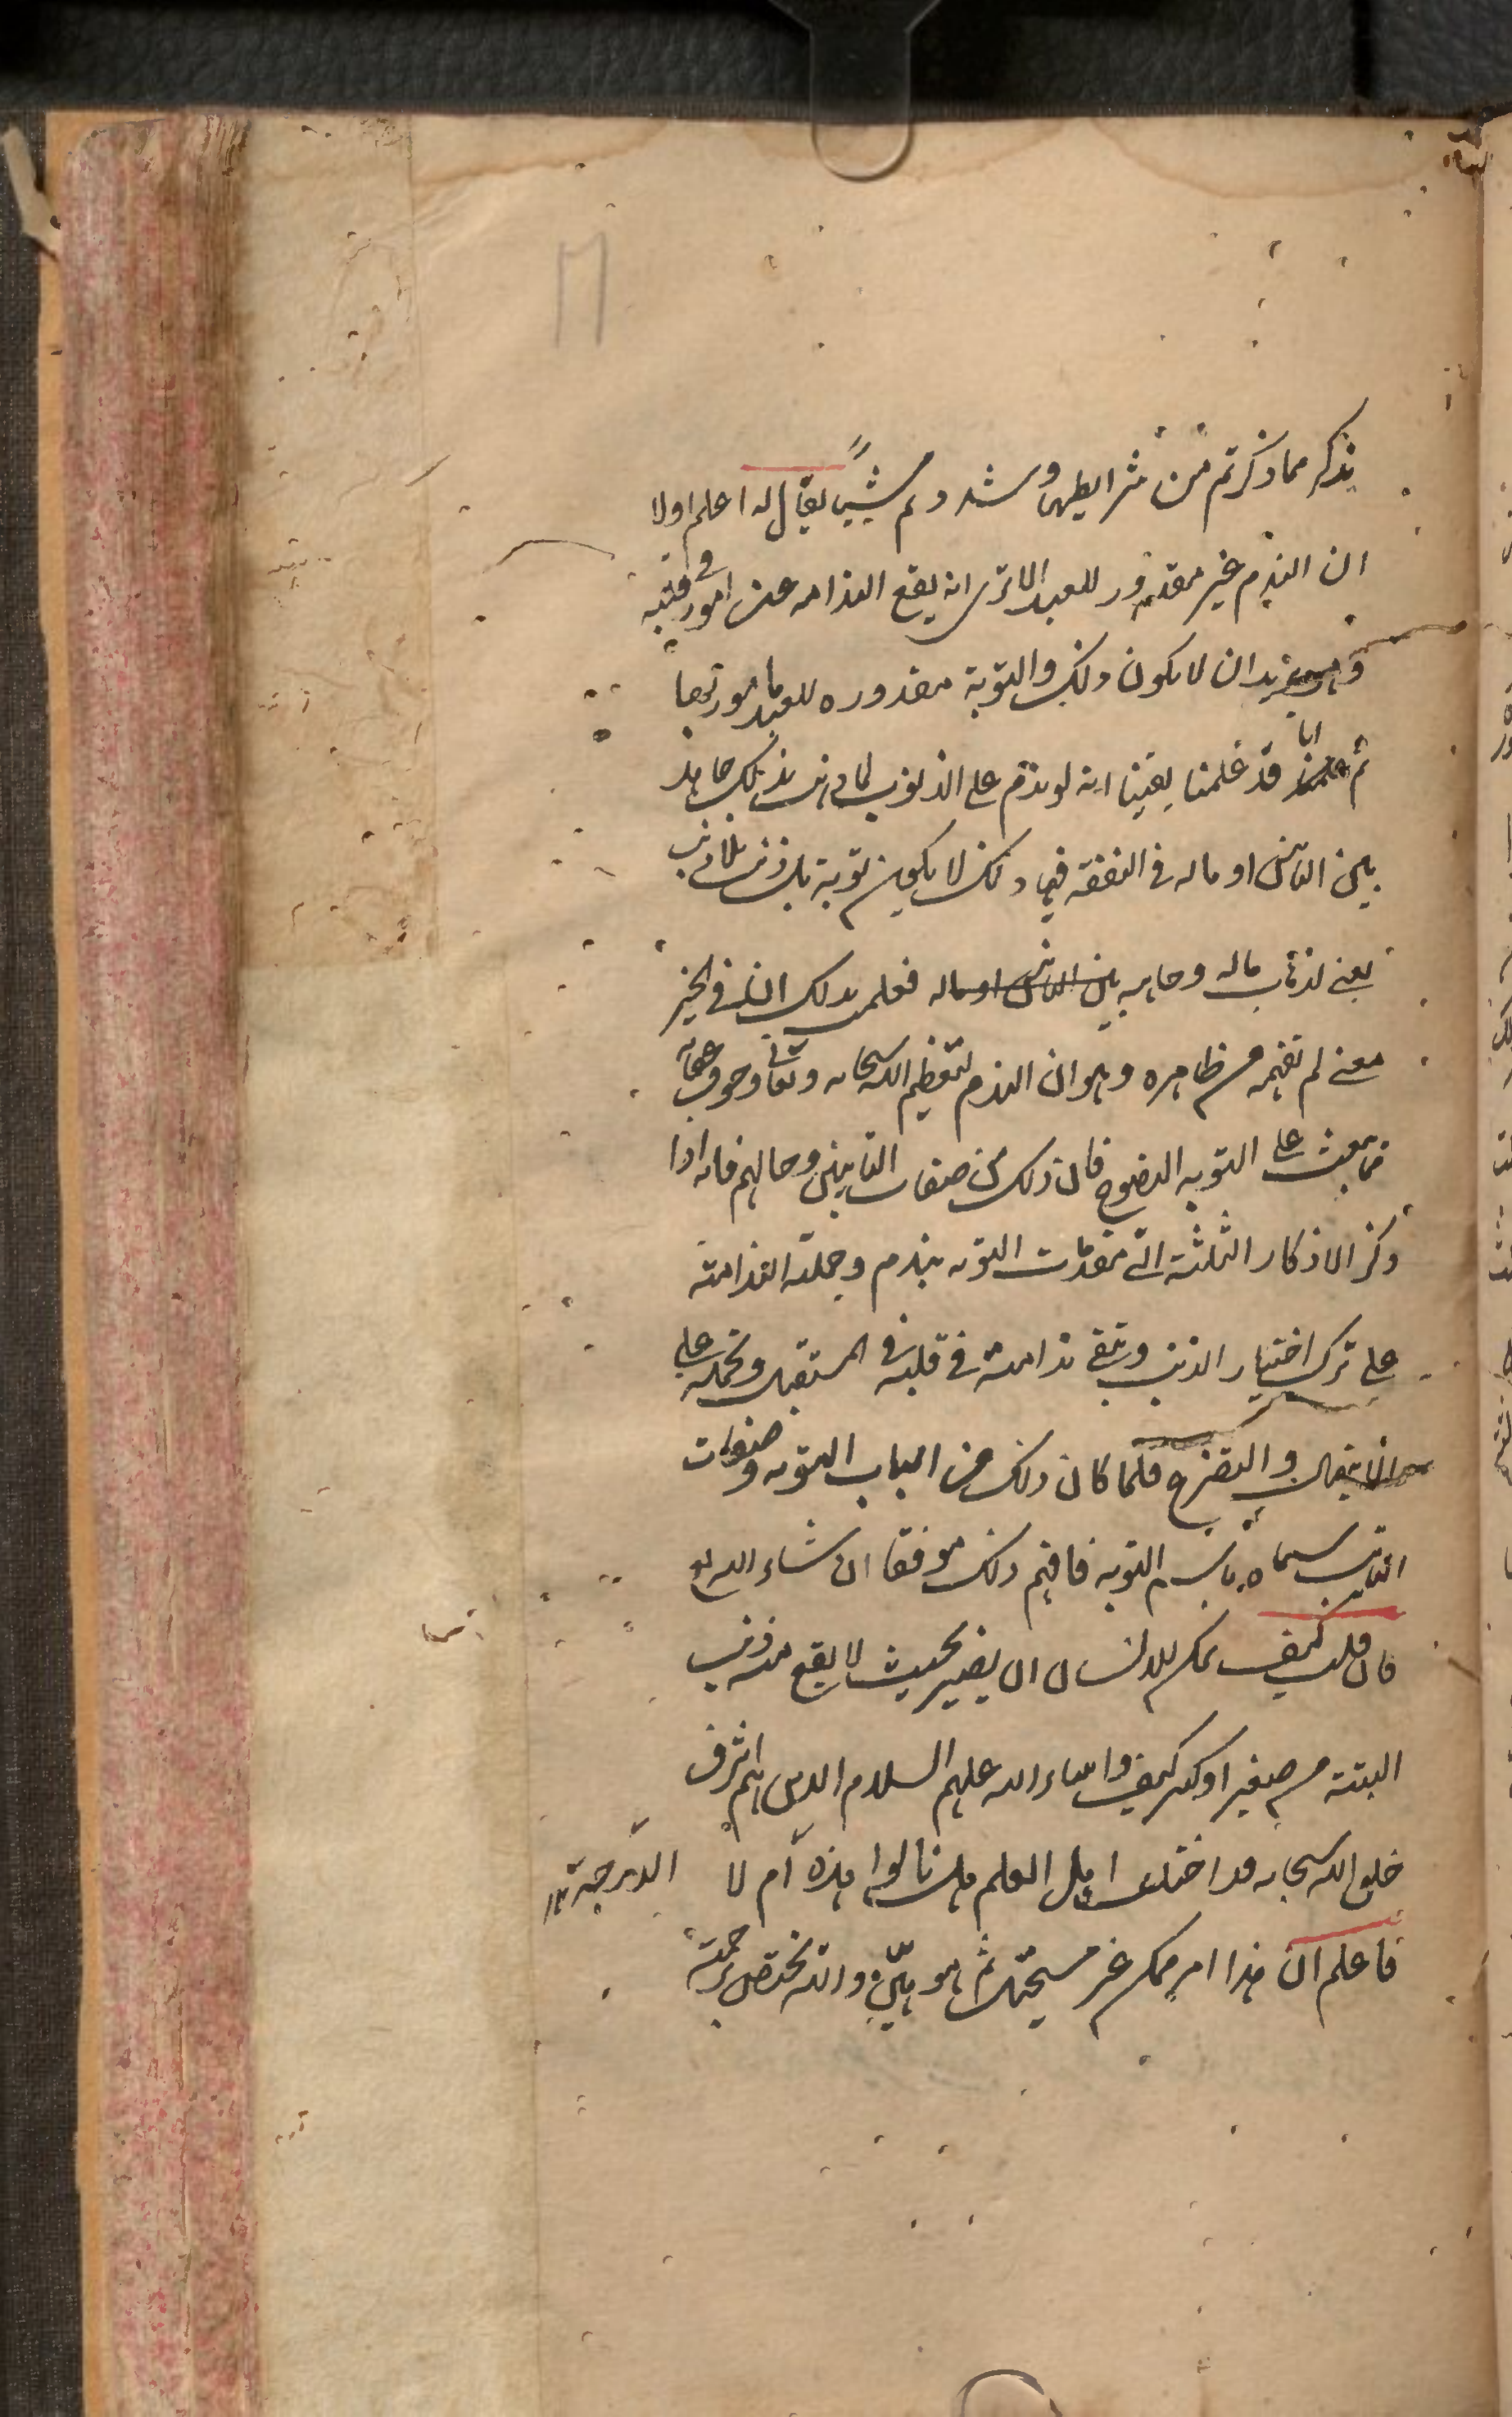 يذكر مما ذكرتم من شرايطها وشدد تم شيئاً يقال له اعلم اولا
ان الندم غير مقدور للعبد الا ترى انه يقع الندامه عن امور في قلبه
و يريد ان لا يكون ذلك والتوبة مقدوره للعبد مامور بها
ثم انا قد علمنا يقينا انه لو ندم على الذنوب لما ذهب بذلك جاهه
بين الناس او ماله في النفقة فيها ذلك لا يكون توبة بل ذنب بلا ريب
يعني لذهاب ماله وجاهه بين الناس او ماله فعلمت بذلك ان في الخبر
معنى لم تفهمه من ظاهره وهو ان الندم لتعظيم الله سبحانه وتعالى وخوف عقابه
مما يبعث على التوبه النصوح فان ذلك من صفات التائبين وحالهم فانه اذا
ذكر الاذكار الثلثة التي مقدمات التوبه يندم وحملته الندامة
على ترك اختيار الذنب وتبقى ندامته في قلبه في المستقبل وتحمله على
الابتهال والتضرع فلما كان ذلك من اسباب التوبه وصفات
التائب سماه باسم التوبه فافهم ذلك موفقا ان شاء الله تع
فان قلت كيف يمكن للانسان ان يصير بحيث لا يقع منه ذنب
البتة من صغير او كبير كيف وانبياء الله عليهم السلام الذين هم اشرف
خلق الله سبحانه قد اختلف اهل العلم هل نالوا هذه الدرجة ام لا
فاعلم ان هذا امر ممكن غير مستحيل ثم هو هيّن والله يختص برحمته